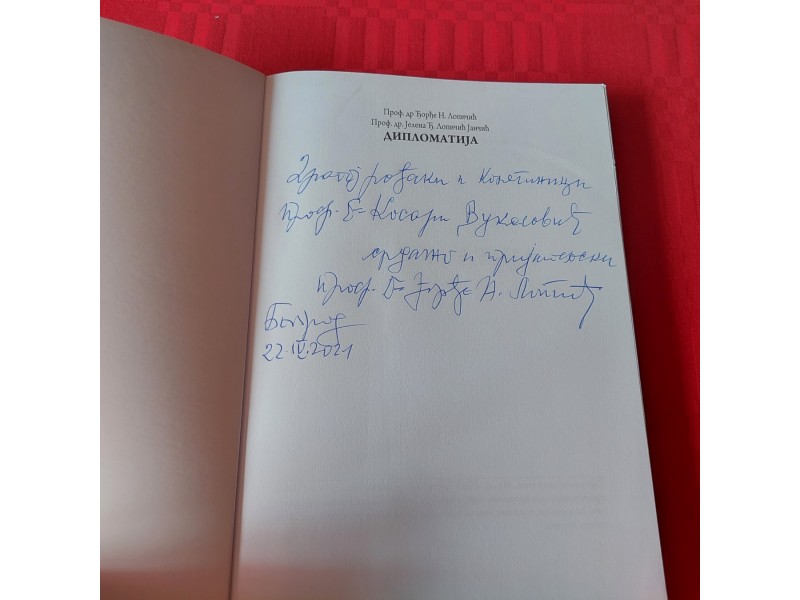 Проф. др Ђорђе Н. Лопичић
Проф. др. Јелена Ђ. Лопичић Јанчић
ДИПЛОМАТИЈА
Драгој рођаки и
проф. др Косари Вукасовић
срдачно и пријатељски
проф. др Ђорђе Н. Лопичић
Београд
22.IV.2021